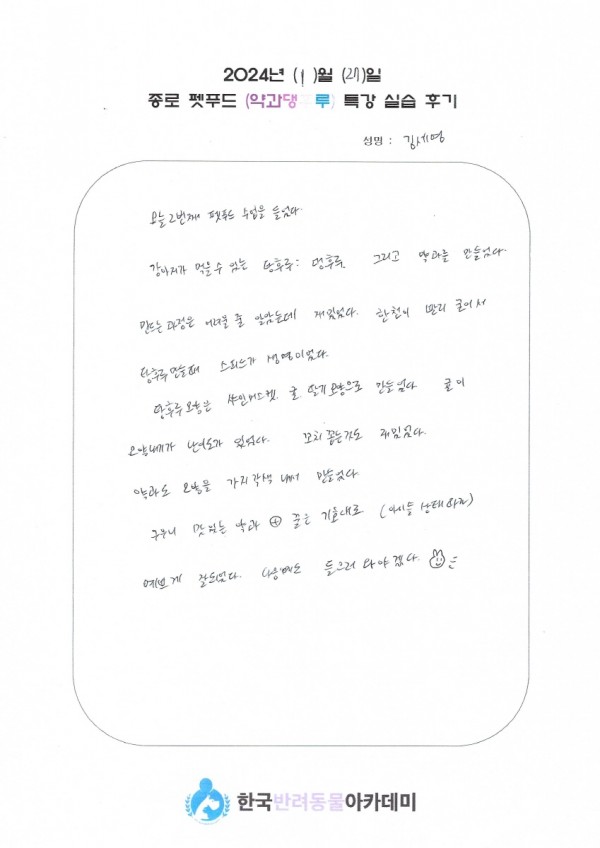 2024년 (1)월 (27)일
종로 펫푸드 (약과댕 루) 특강 실습 후기
성명 : 김세영
오늘 2번째 펫푸드 수업을 들었다.
강아지가 먹을 수 있는 탕후루: 멍후루, 그리고 약과를 만들었다.
만드는 과정은 어려울 줄 알았는데 재밌었다. 한천이 빨리 굳어서
탕후루 만들때 스피드가 생명이었다.
탕후루 모양은 샤인머스켓, 귤, 딸기 모양으로 만들었다. 귤이
모양내기가 난이도가 있었다. 꼬치 꽂는것도 재밌었다.
약과도 모양을 가지각색 내서 만들었다.
구우니 맛있는 약과 ⊕ 꿀은 기호대로
예쁘게 잘되었다. 다음번에도 들으러 와야겠다.
한국반려동물아카데미